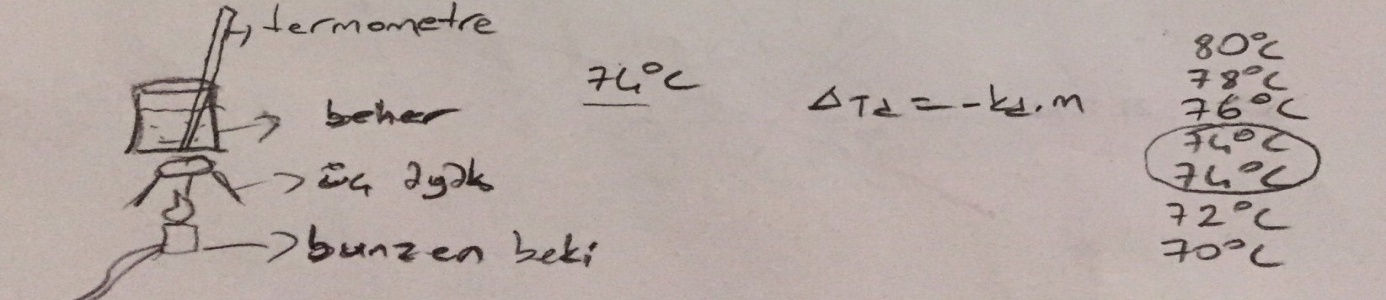 termometre
beher
üç ayak
bunzen beki
74°C
ΔTd = -kd.m
80°C
78°C
76°C
74°C
74°C
72°C
70°C